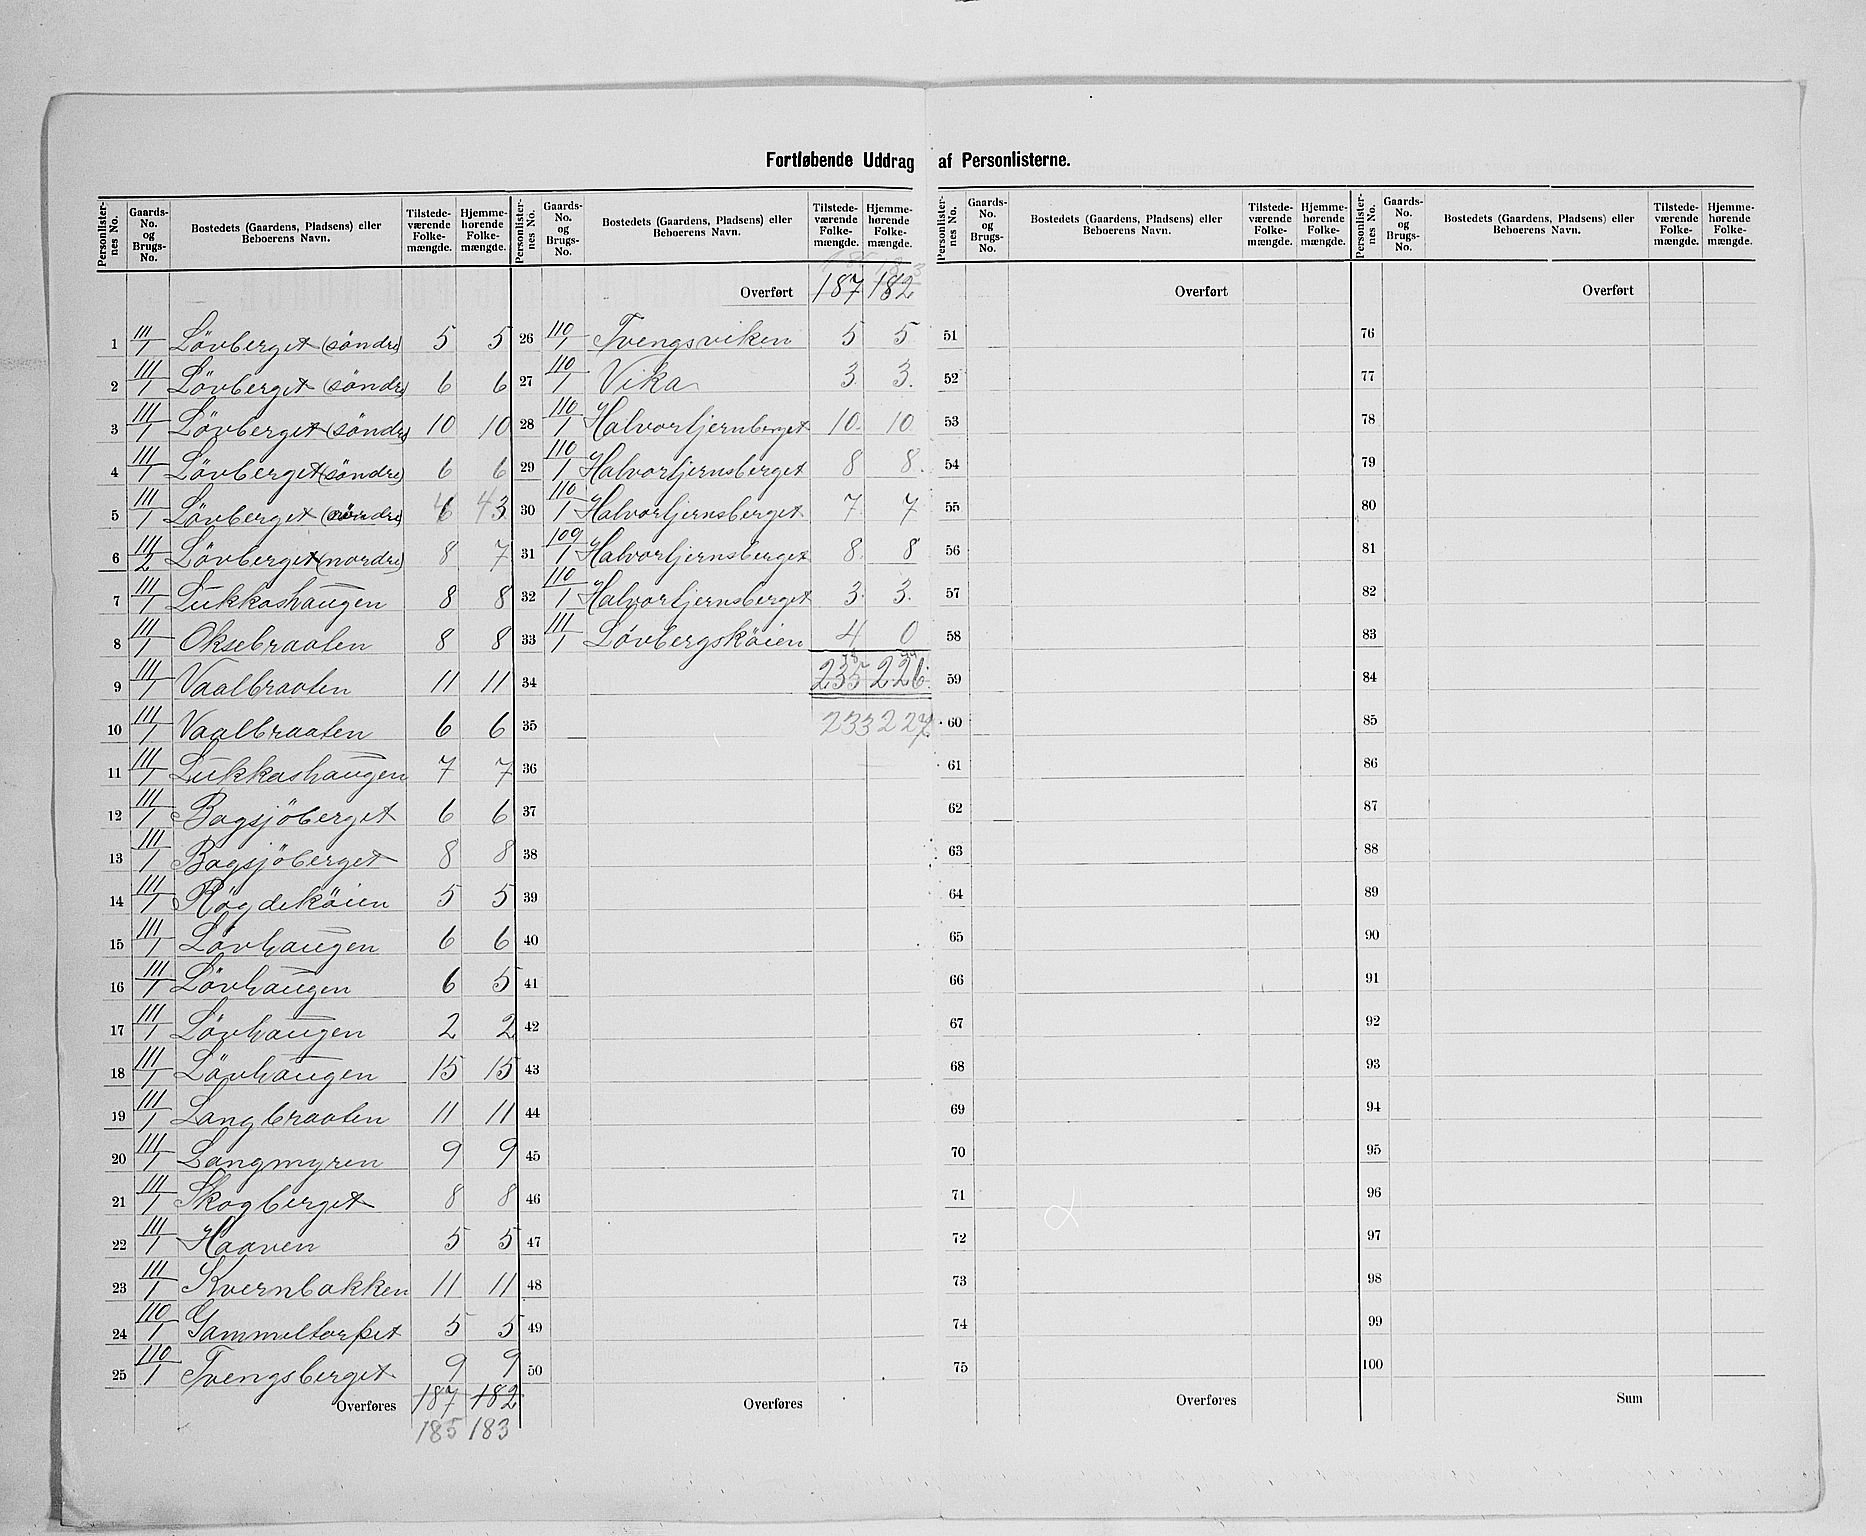 Fortløbende Uddrag af Personlisterne.
Personlisternes No. | Gaards-No. og Brugs-No. | Bostedets (Gaardens, Pladsens) eller Beboerens Navn. | Tilstedeværende Folkemængde. | Hjemmehørende Folkemængde.
1 111/1 Lövberget (söndre) 5 5
2 111/1 Lövberget (söndre) 6 6
3 111/1 Lövberget (söndre) 10 10
4 111/1 Lövberget (söndre) 6 6
5 111/1 Lövberget (söndre) 6 4 3
6 111/2 Lövberget (nordre) 8 7
7 111/1 Lukkashaugen 8 8
8 111/1 Oksebraaten 8 8
9 111/1 Vaalbraaten 11 11
10 111/1 Vaalbraaten 6 6
11 111/1 Lukkashaugen 7 7
12 111/1 Bagsjöberget 6 6
13 111/1 Bagsjöberget 8 8
14 111/1 Rögdeköien 5 5
15 111/1 Lövhaugen 6 6
16 111/1 Lövhaugen 6 5
17 111/1 Lövhaugen 2 2
18 111/1 Lövhaugen 15 15
19 111/1 Langbraaten 11 11
20 111/1 Langmyren 9 9
21 111/1 Skogberget 8 8
22 111/1 Haaven 5 5
23 111/1 Kvernbakken 11 11
24 110/1 Gammeltorpet 5 5
25 110/1 Tvengsberget 9 9
Overføres 187 182
185 183
Personlisternes No. | Gaards-No. og Brugs-No. | Bostedets (Gaardens, Pladsens) eller Beboerens Navn. | Tilstedeværende Folkemængde. | Hjemmehørende Folkemængde.
Overført 187 182
26 110/1 Tvengsviken 5 5
27 110/1 Vika 3 3.
28 110/1 Halvortjernberget 10 10
29 110/1 Halvortjernsberget 8 8.
30 110/1 Halvortjernsberget 7 7
31 109/1 Halvortjernsberget 8 8
32 110/1 Halvortjernsberget 3 3.
33 111/1 Lövbergsköien 4 0
34 235 226.
35 233 227
36
37
38
39
40
41
42
43
44
45
46
47
48
49
50
Overføres
Personlisternes No. | Gaards-No. og Brugs-No. | Bostedets (Gaardens, Pladsens) eller Beboerens Navn. | Tilstedeværende Folkemængde. | Hjemmehørende Folkemængde.
Overført
51
52
53
54
55
56
57
58
59
60
61
62
63
64
65
66
67
68
69
70
71
72
73
74
75
Overføres
Personlisternes No. | Gaards-No. og Brugs-No. | Bostedets (Gaardens, Pladsens) eller Beboerens Navn. | Tilstedeværende Folkemængde. | Hjemmehørende Folkemængde.
Overført
76
77
78
79
80
81
82
83
84
85
86
87
88
89
90
91
92
93
94
95
96
97
98
99
100
Sum